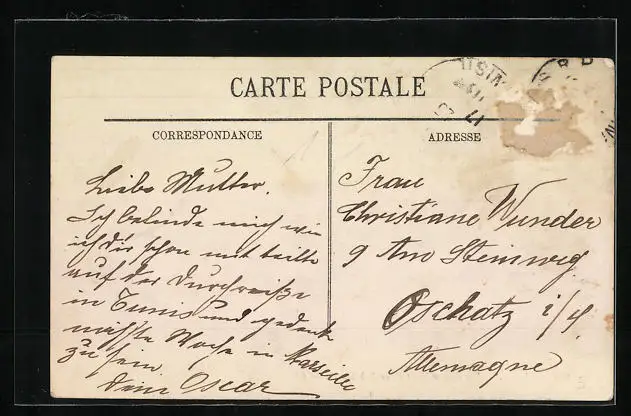 CARTE POSTALE
CORRESPONDANCE
ADRESSE
Liebe Mutter.
Ich befinde mich wie
ich dir schon mitteilte
auf der Durchreise
in Tunis und gedenke
nächste Woche in Marseille
zu sein.
Dein Oscar
Frau
Christiane Wunder
9 Am Steinweg
Oschatz i/S.
Allemagne